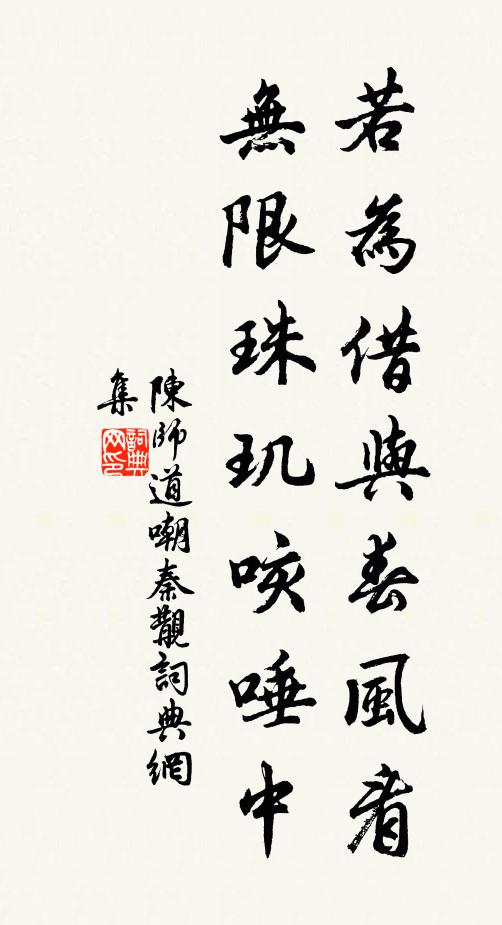 若為借與春風看
無限珠璣咳唾中
陳師道嘲秦觀詞典網
集
詞典網印